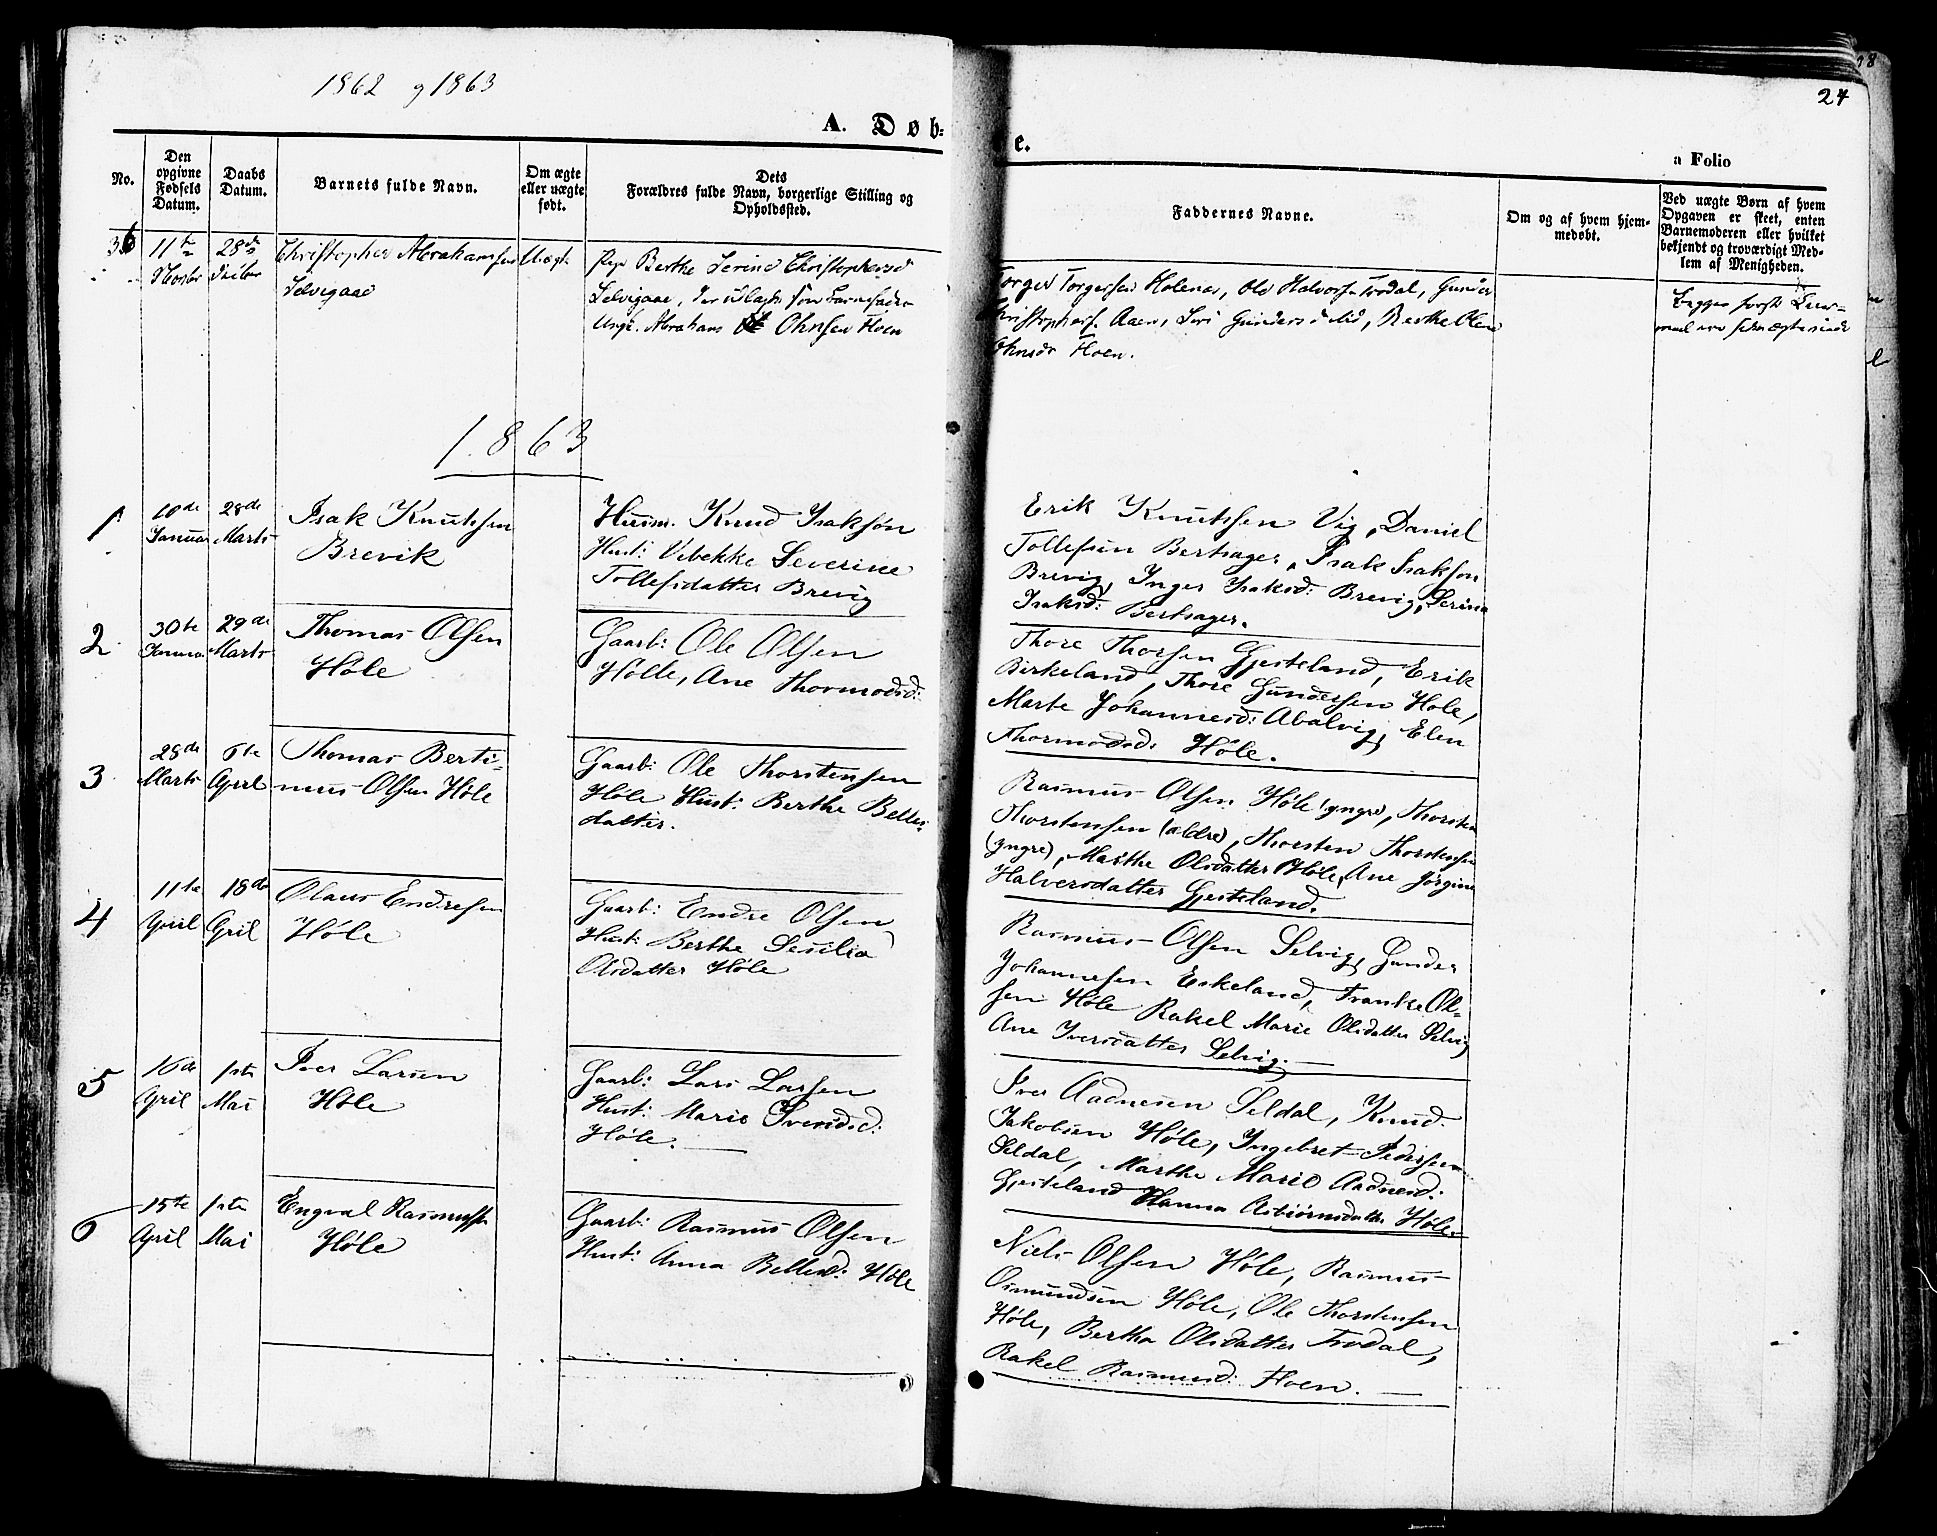 1862 og 1863
A. Døb-
e.
a Folio
24
No.
Den opgivne Fødsels Datum.
Daabs Datum.
Barnets fulde Navn.
Om ægte eller uægte født.
Dets
Forældres fulde Navn, borgerlige Stilling og
Opholdssted.
Faddernes Navne.
Om og af hvem hjem-
medøbt.
Ved uægte Børn af hvem
Opgaven er skeet, enten
Barnemoderen eller hvilket
bekjendt og troværdigt Med-
lem af Menigheden.
36
11te
28de
Christopher Abrahamsen
Selvigaae
Uægt.
Pige Berthe Serine Christophersd
Selvigaae,
Ungk. Abraham Ohnsen Hoen
Torger Torgersen Holenes, Ole Halvors. Frodal, Gunder
Christophers. Aaen, Siri Gundersd Lid, Berthe Oline
Ohnsdr Hoen.
Begges første
1863
1
10de
Januar
28de
Marts
Isak Knutssen
Brevik
Huusm. Knud Isaksøn
Hust: Vibekke Severine
Tollefsdatter Brevig
Erik Knutssen Vig, Daniel
Tollefsen Bertsager, Isak Isaksøn
Brevig, Inger Isaksd: Brevig, Serina
Isaksd: Bertsager.
2
30te
Januar
29de
Marts
Thomas Olsen
Høle
Gaarb: Ole Olsen
Hølle, Ane Thormodsd:
Thore Thorsen Gjesteland, Erik
Birkeland, Thore Gundersen Høle,
Marte Johannesd: Abalvig, Elen
Thormodsd: Høle.
3
28de
Marts
6te
April
Thomas Berti-
nius Olsen Høle
Gaarb: Ole Thorstensen
Høle Hust: Berthe Belles
datter.
Rasmus Olsen Høle (yngre), Thorsten
Thorstensen (ældre), Thorsten Thorstensen
(yngre), Marthe Olsdatter Høle, Ane Jørgine
Halversdatter Gjesteland.
4
11te
April
18de
April
Olaus Endresen
Høle
Gaarb: Endre Olsen
Hust: Berthe Sesilia
Olsdatter Høle
Rasmus Olsen Selvig, Gunder
Johannesen Eskeland, Franke Ol-
sen Høle Rakel Marie Olsdatter Selvig
Ane Iversdatter Selvig.
5
16de
April
1ste
Mai
Iver Larsen
Høle
Gaarb: Lars Larsen
Hust: Marie Iversd:
Høle.
Iver Aadnesen Seldal, Knud
Jakobsen Høle, Ingebret Pedersen
Seldal, Marthe Marie Aadnesd:
Gjesteland Hanna Asbiørnsdatter Høle.
6
15te
April
1ste
Mai
Engval Rasmussen
Høle
Gaarb: Rasmus Olsen
Hust: Anna Bellesd: Høle
Niels Olsen Høle, Rasmus
Osmundsen Høle, Ole Thorstensen
Høle, Bertha Olsdatter Frodal,
Rakel Rasmusd: Hoen.